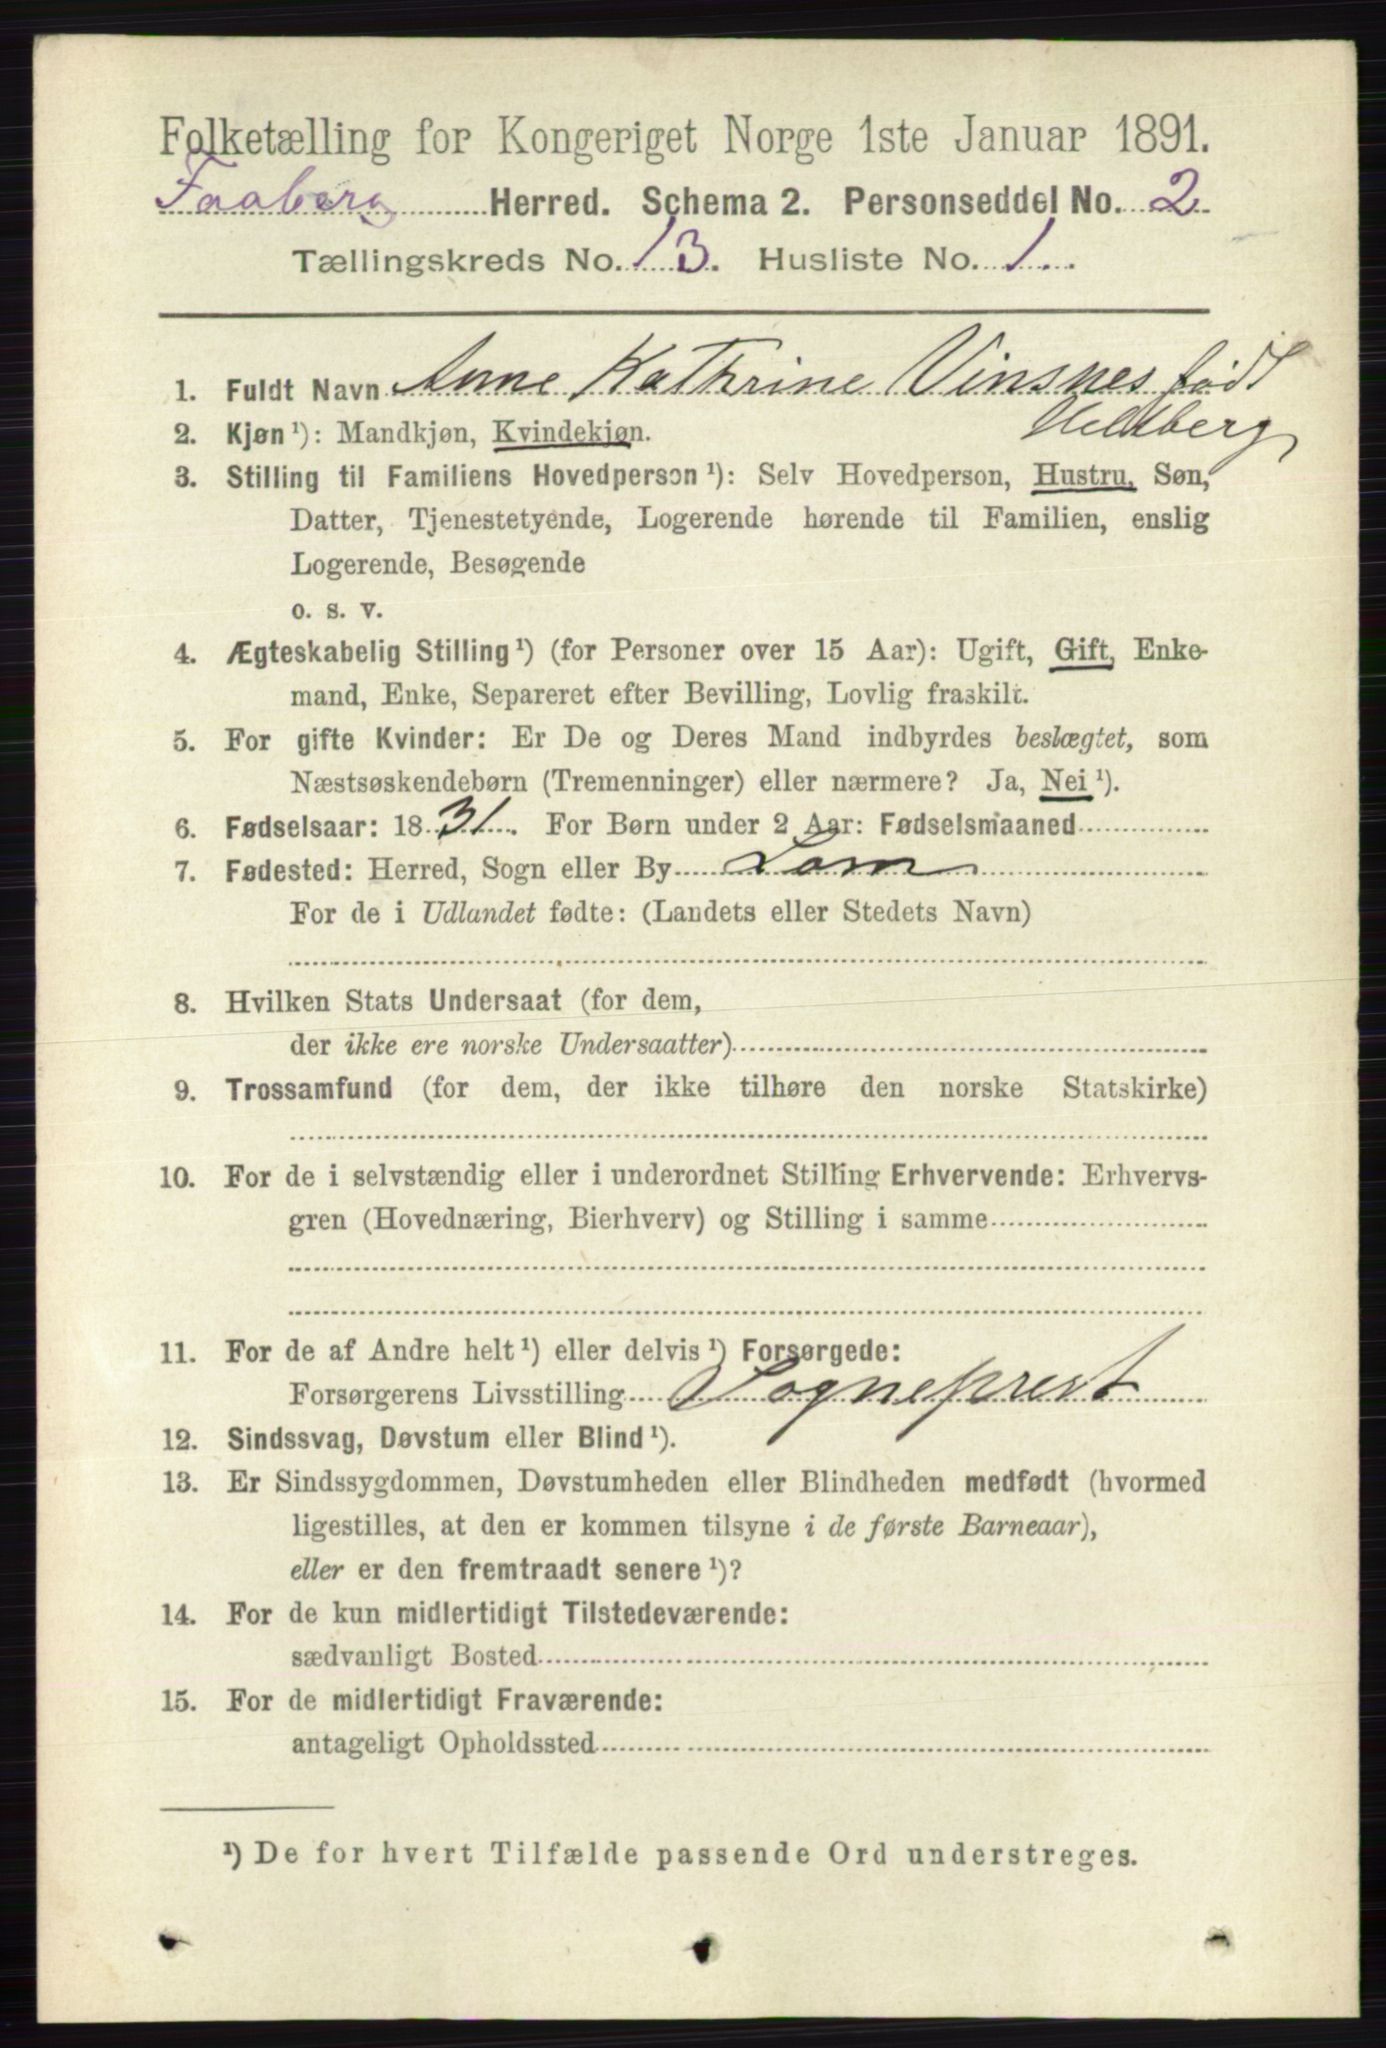 Folketælling for Kongeriget Norge 1ste Januar 1891.
Faaberg Herred. Schema 2. Personseddel No. 2
Tællingskreds No. 13. Husliste No. 1.
1. Fuldt Navn Anne Kathrine Vinsnes født
2. Kjøn ¹): Mandkjøn, Kvindekjøn.
3. Stilling til Familiens Hovedperson ¹): Selv Hovedperson, Hustru, Søn,
Datter, Tjenestetyende, Logerende hørende til Familien, enslig
Logerende, Besøgende
o. s. v.
4. Ægteskabelig Stilling ¹) (for Personer over 15 Aar): Ugift, Gift, Enke-
mand, Enke, Separeret efter Bevilling, Lovlig fraskilt.
5. For gifte Kvinder: Er De og Deres Mand indbyrdes beslægtet, som
Næstsøskendebørn (Tremenninger) eller nærmere? Ja, Nei ¹).
6. Fødselsaar: 1831. For Børn under 2 Aar: Fødselsmaaned
7. Fødested: Herred, Sogn eller By Lom
For de i Udlandet fødte: (Landets eller Stedets Navn)
8. Hvilken Stats Undersaat (for dem,
der ikke ere norske Undersaatter)
9. Trossamfund (for dem, der ikke tilhøre den norske Statskirke)
10. For de i selvstændig eller i underordnet Stilling Erhvervende: Erhvervs-
gren (Hovednæring, Bierhverv) og Stilling i samme
11. For de af Andre helt ¹) eller delvis ¹) Forsørgede:
Forsørgerens Livsstilling Sogneprest
12. Sindssvag, Døvstum eller Blind ¹).
13. Er Sindssygdommen, Døvstumheden eller Blindheden medfødt (hvormed
ligestilles, at den er kommen tilsyne i de første Barneaar),
eller er den fremtraadt senere ¹)?
14. For de kun midlertidigt Tilstedeværende:
sædvanligt Bosted
15. For de midlertidigt Fraværende:
antageligt Opholdssted
¹) De for hvert Tilfælde passende Ord understreges.